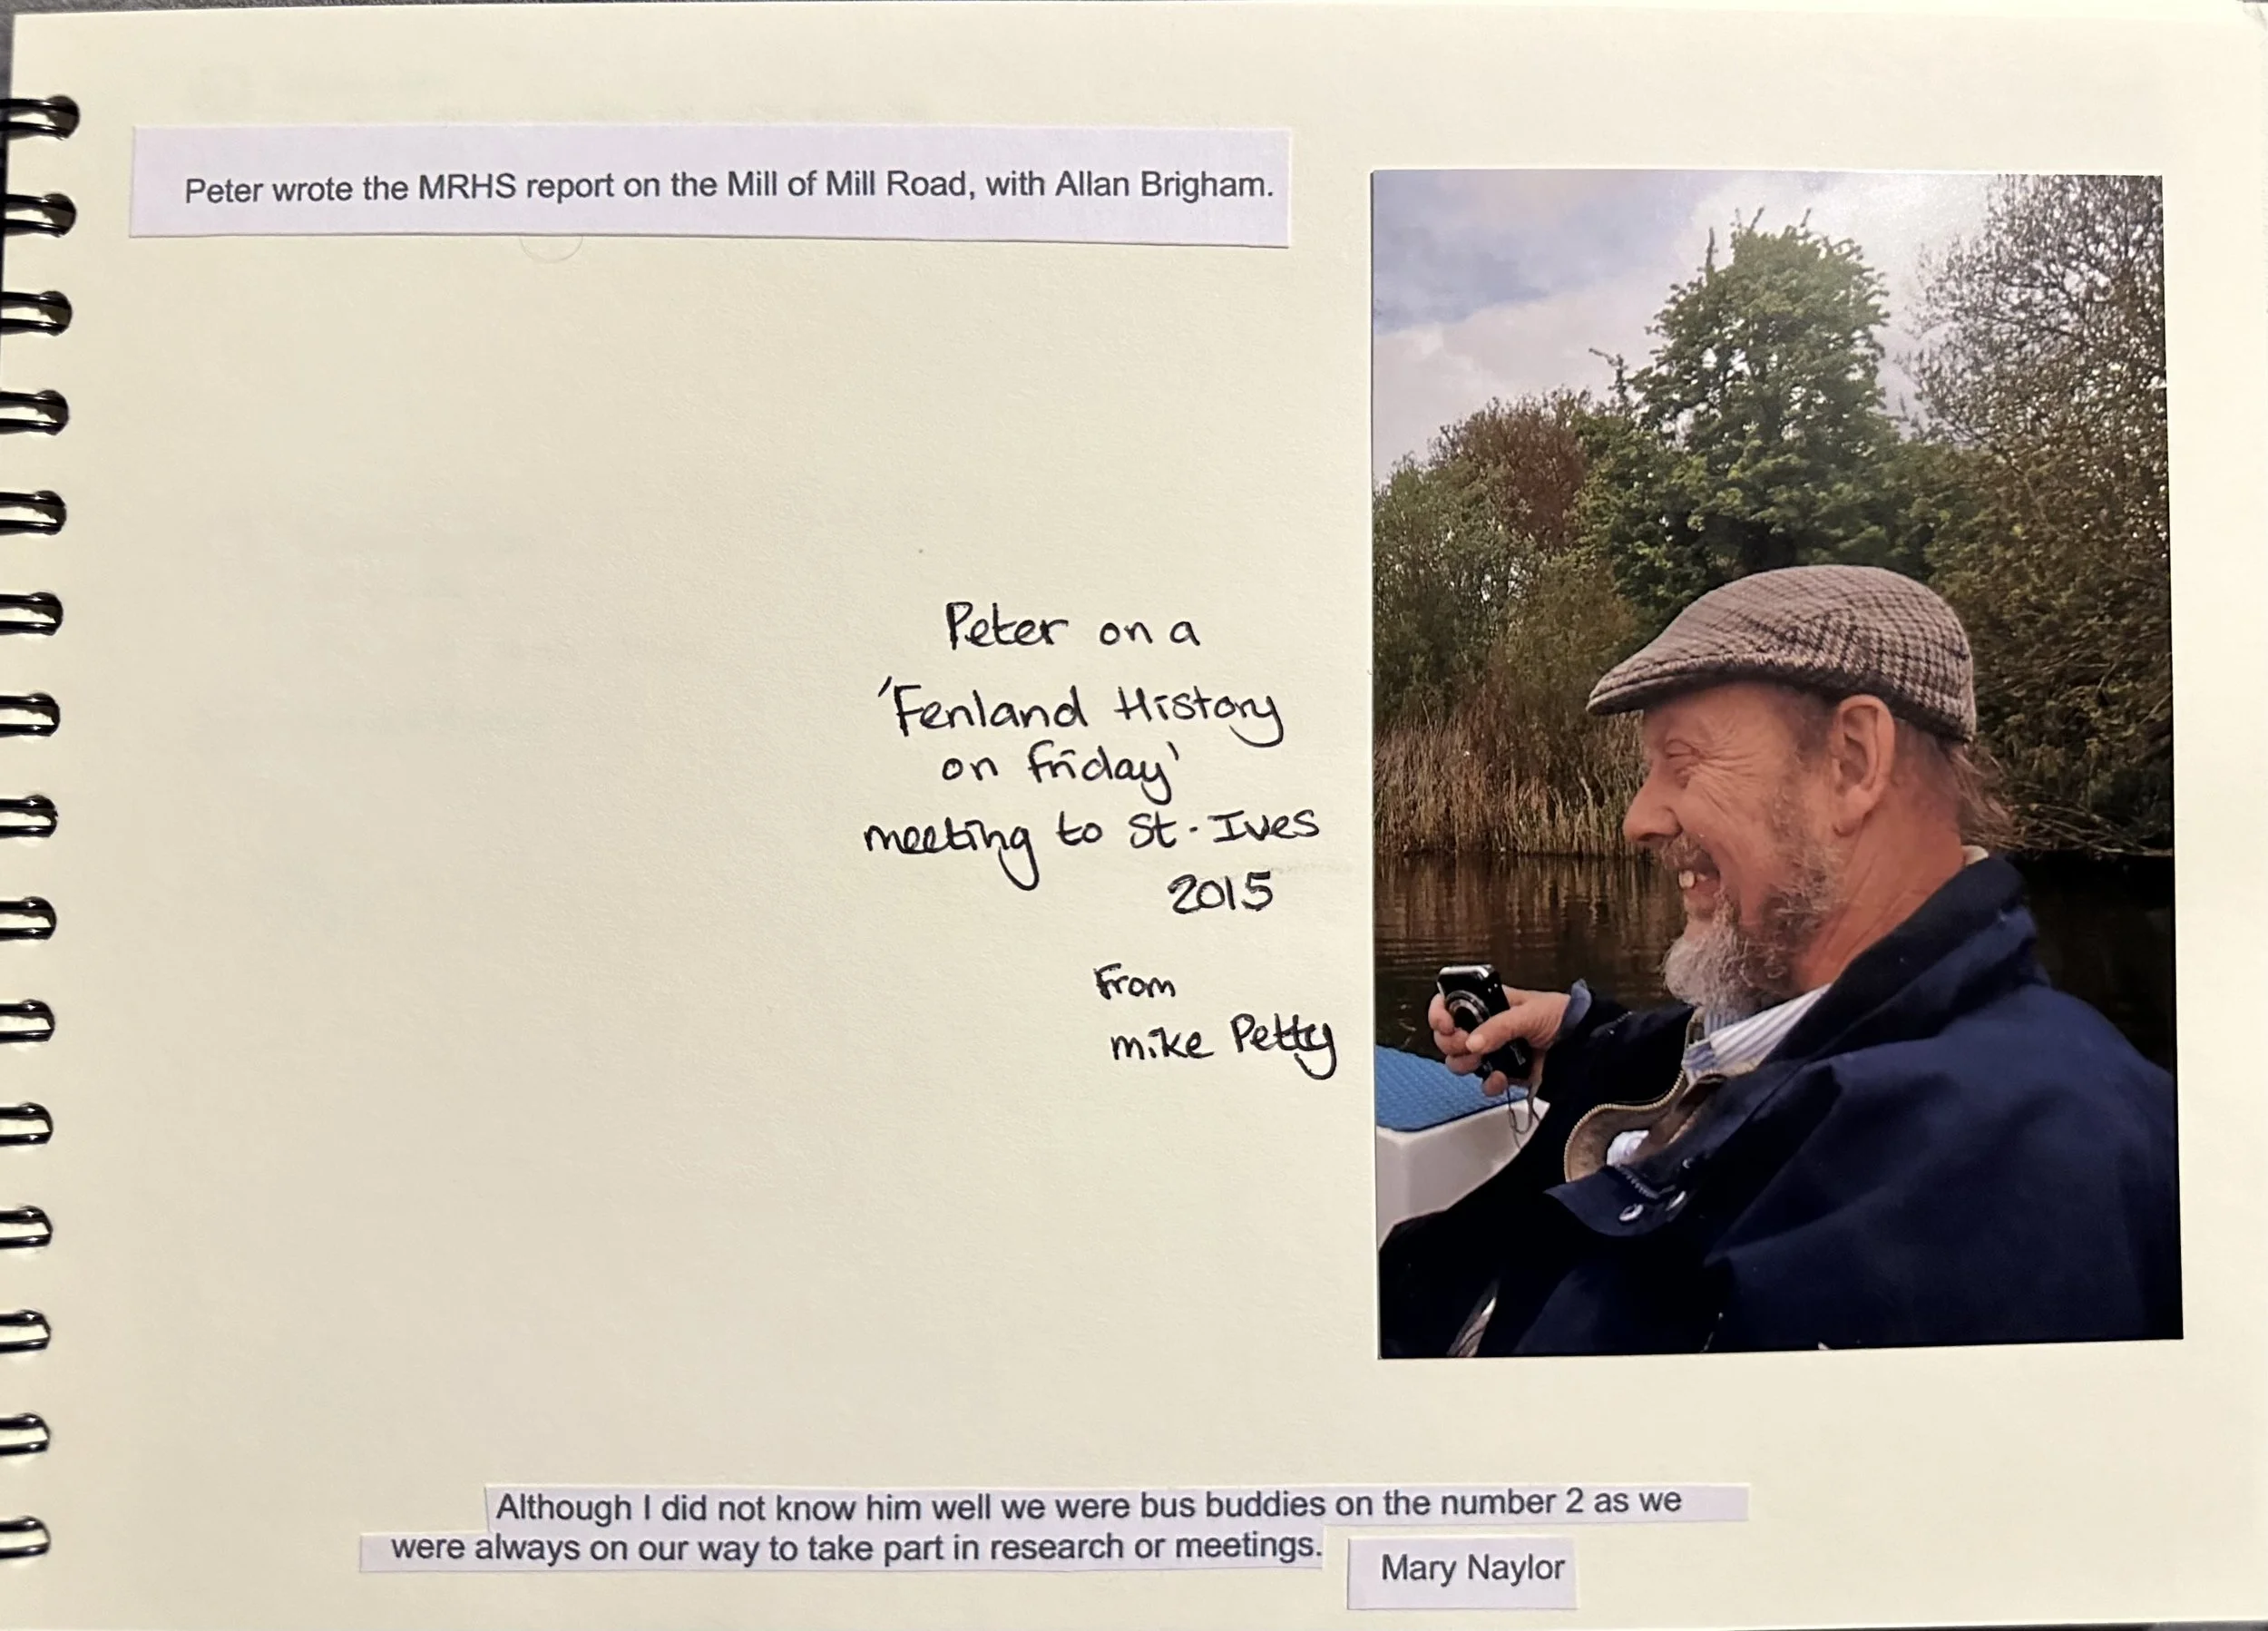 Peter wrote the MRHS report on the Mill of Mill Road, with Allan Brigham.
Peter on a
'Fenland History
on Friday'
meeting to St. Ives
2015
From
mike Petty
Although I did not know him well we were bus buddies on the number 2 as we
were always on our way to take part in research or meetings.
Mary Naylor